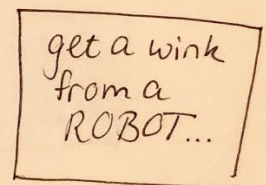 get a wink
from a
ROBOT...